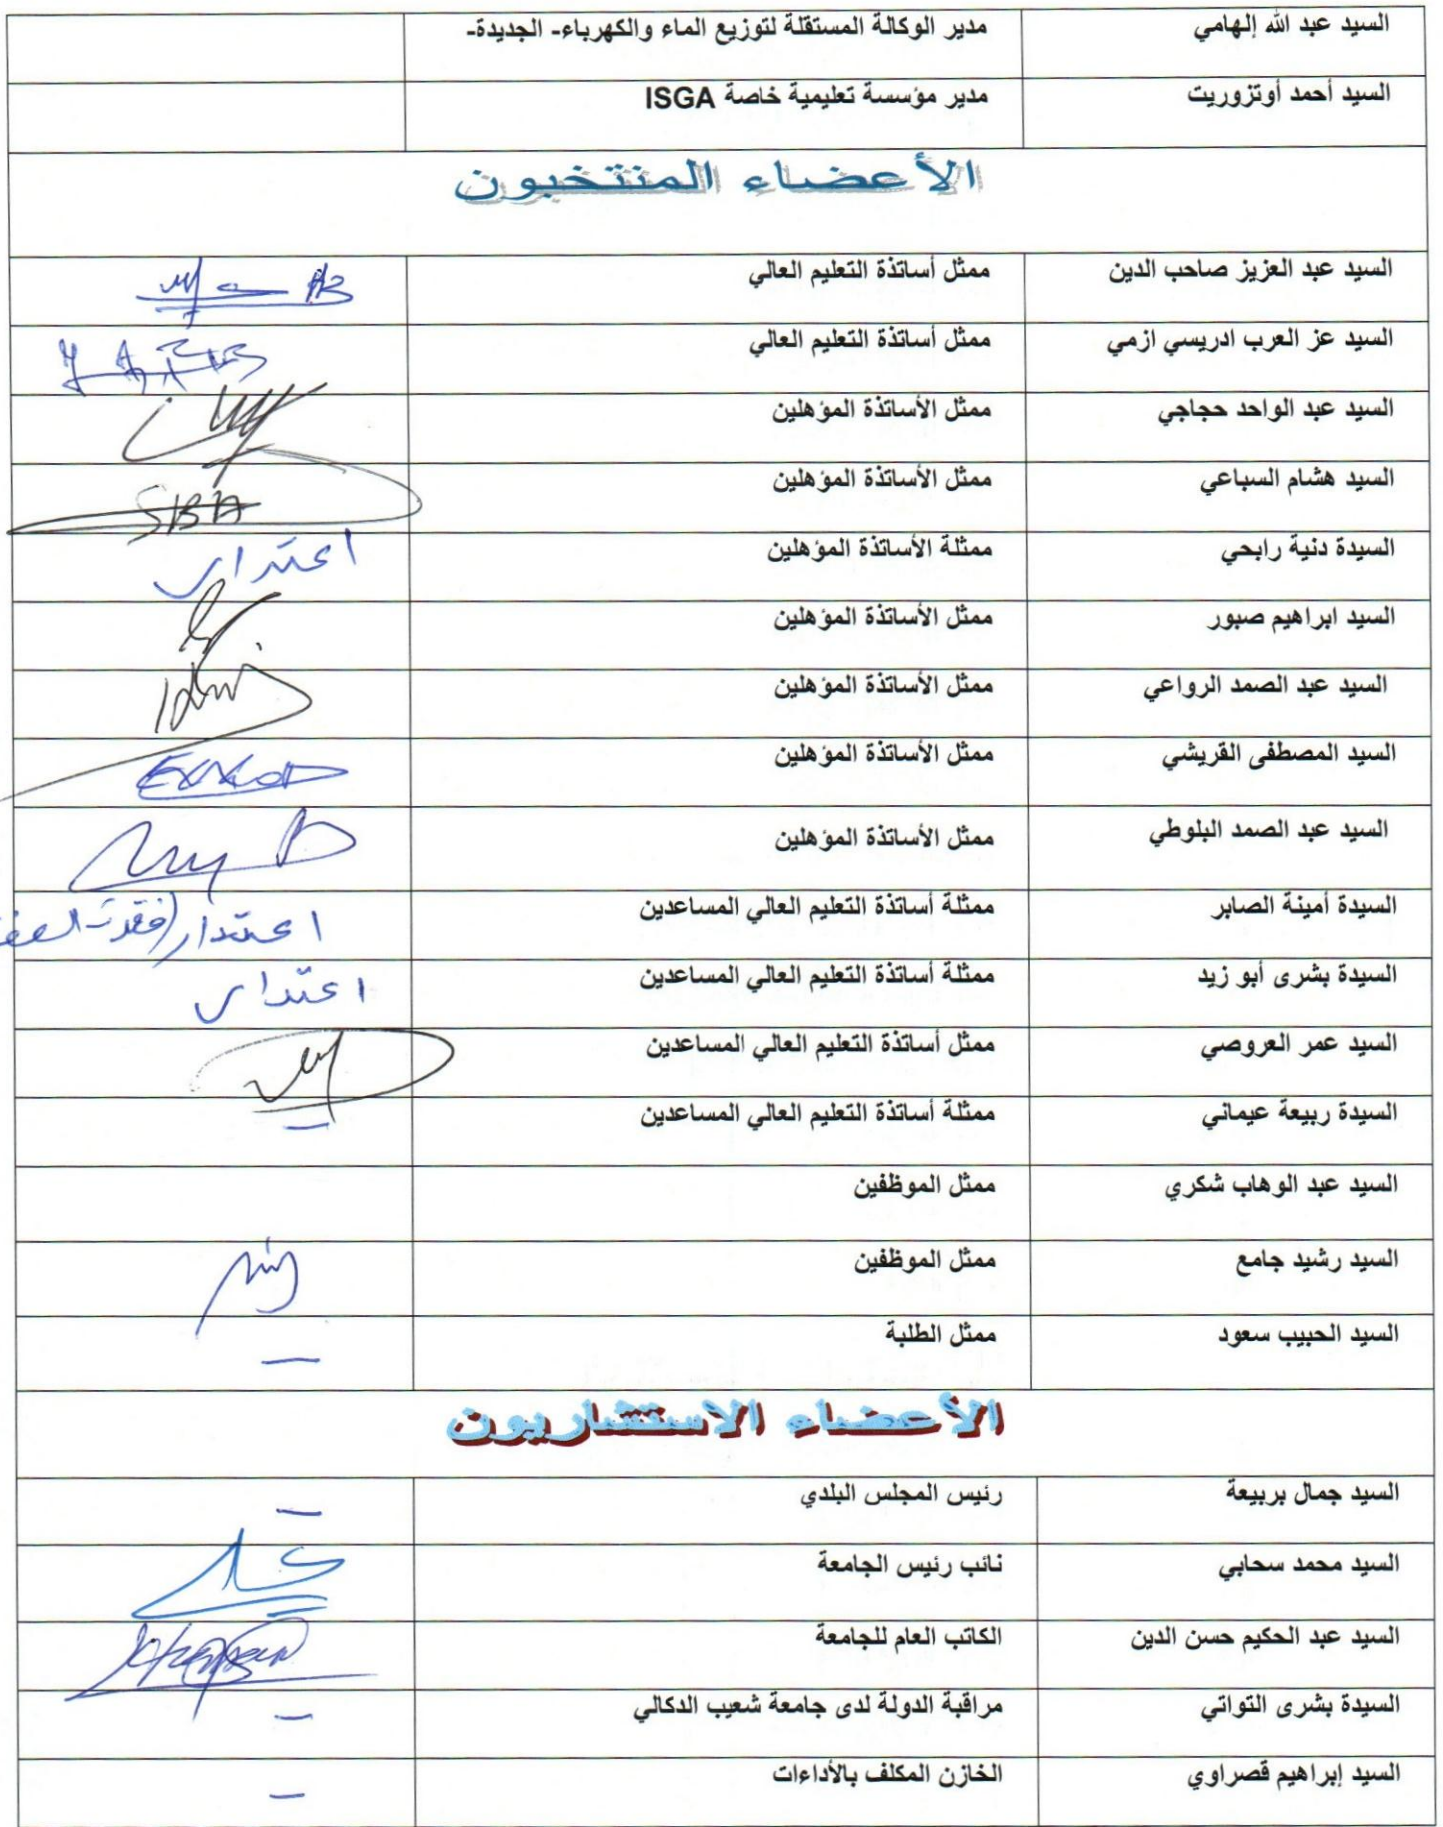 السيد عبد الله إلهامي مدير الوكالة المستقلة لتوزيع الماء والكهرباء- الجديدة-
السيد أحمد أوتزوريت مدير مؤسسة تعليمية خاصة ISGA
الأعضاء المنتخبون
السيد عبد العزيز صاحب الدين ممثل أساتذة التعليم العالي
السيد عز العرب ادريسي ازمي ممثل أساتذة التعليم العالي
السيد عبد الواحد حجاجي ممثل الأساتذة المؤهلين
السيد هشام السباعي ممثل الأساتذة المؤهلين SIBA
السيدة دنية رابحي ممثلة الأساتذة المؤهلين اعتدار
السيد ابراهيم صبور ممثل الأساتذة المؤهلين
السيد عبد الصمد الرواعي ممثل الأساتذة المؤهلين
السيد المصطفى القريشي ممثل الأساتذة المؤهلين
السيد عبد الصمد البلوطي ممثل الأساتذة المؤهلين
السيدة أمينة الصابر ممثلة أساتذة التعليم العالي المساعدين اعتدار (فقدت
السيدة بشرى أبو زيد ممثلة أساتذة التعليم العالي المساعدين اعتدار
السيد عمر العروصي ممثل أساتذة التعليم العالي المساعدين
السيدة ربيعة عيماني ممثلة أساتذة التعليم العالي المساعدين –
السيد عبد الوهاب شكري ممثل الموظفين
السيد رشيد جامع ممثل الموظفين
السيد الحبيب سعود ممثل الطلبة –
الأعضاء الاستشاريون
السيد جمال بربيعة رئيس المجلس البلدي –
السيد محمد سحابي نائب رئيس الجامعة
السيد عبد الحكيم حسن الدين الكاتب العام للجامعة
السيدة بشرى التواتي مراقبة الدولة لدى جامعة شعيب الدكالي –
السيد إبراهيم قصراوي الخازن المكلف بالأداءات –